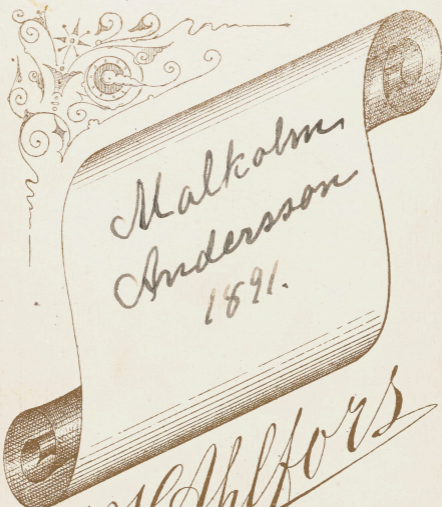 Malkolm
Andersson
1891.
Ahlfors